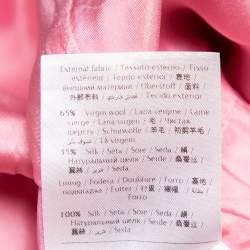 External fabric / Tessuto esterno / Tissu
extérieur / Tejido exterior / 表地
внешний материал / Oberstoff / 面料
外部布料 /
65% Virgin wool / Lana vergine / Laine
vierge / Lana virgen / 毛 / Чистая
шерсть / Schurwolle / 羊毛 / 初剪羊毛 /
/ Lã virgem
35% Silk / Seta / Soie / Seda / 絹 /
Натуральный шелк / Seide / 桑蚕丝 /
蠶絲 / / Seda
Lining / Fodera / Doublure / Forro / 裏地
подкладка / Futter / 里料 /
/ Forro
100% Silk / Seta / Soie / Seda / 絹 /
Натуральный шелк / Seide / 桑蚕丝 /
蠶絲 / / Seda